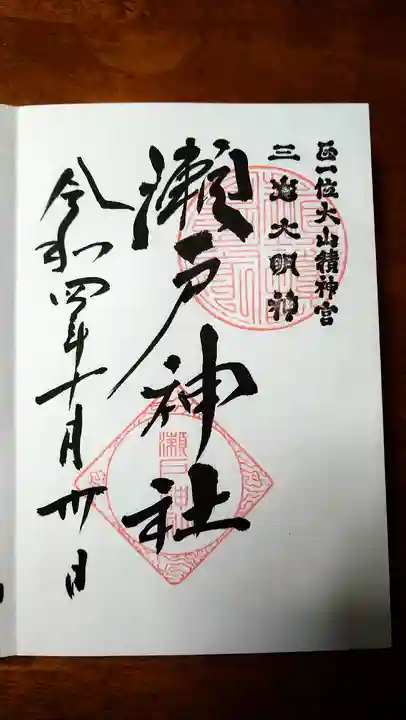 正一位大山積神宮
三島大明神
瀬戸神社
令和四年十月卅日
瀬戸神社